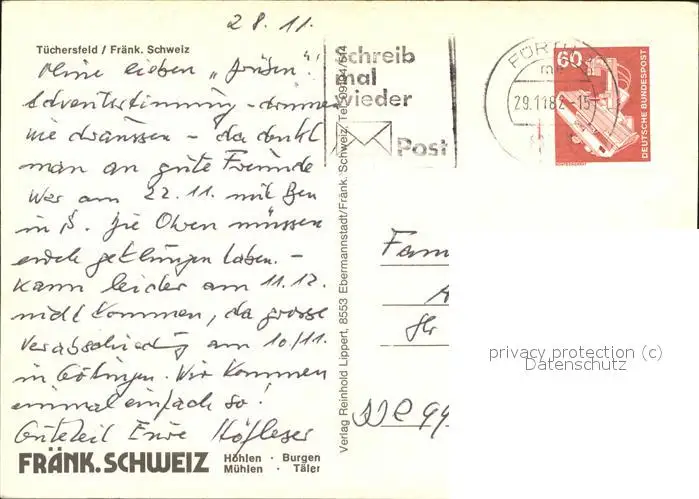 28.11.
Tüchersfeld / Fränk. Schweiz
Meine lieben
Adventsstimmung – drinnen
wie draussen – da denkt
man an gute Freunde
War am 22.11. mit Ben
in B. Die Ohren müssen
euch geklungen haben. –
kann leider am 11.12.
nicht kommen, da grosse
Verabschiedung am 10/11.
in Göttingen. Wir kommen
einmal einfach so!
Eure
FRÄNK. SCHWEIZ
Höhlen · Burgen
Mühlen · Täler
Verlag Reinhold Lippert, 8553 Ebermannstadt/Fränk. Schweiz, Tel. 09194/514
Schreib
mal
wieder
Post
FÜRTH
29.11.82-15
60
DEUTSCHE BUNDESPOST
Fam
privacy protection (c)
Datenschutz